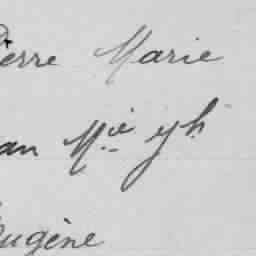 Pierre Marie
an M.ie yh
Eugène